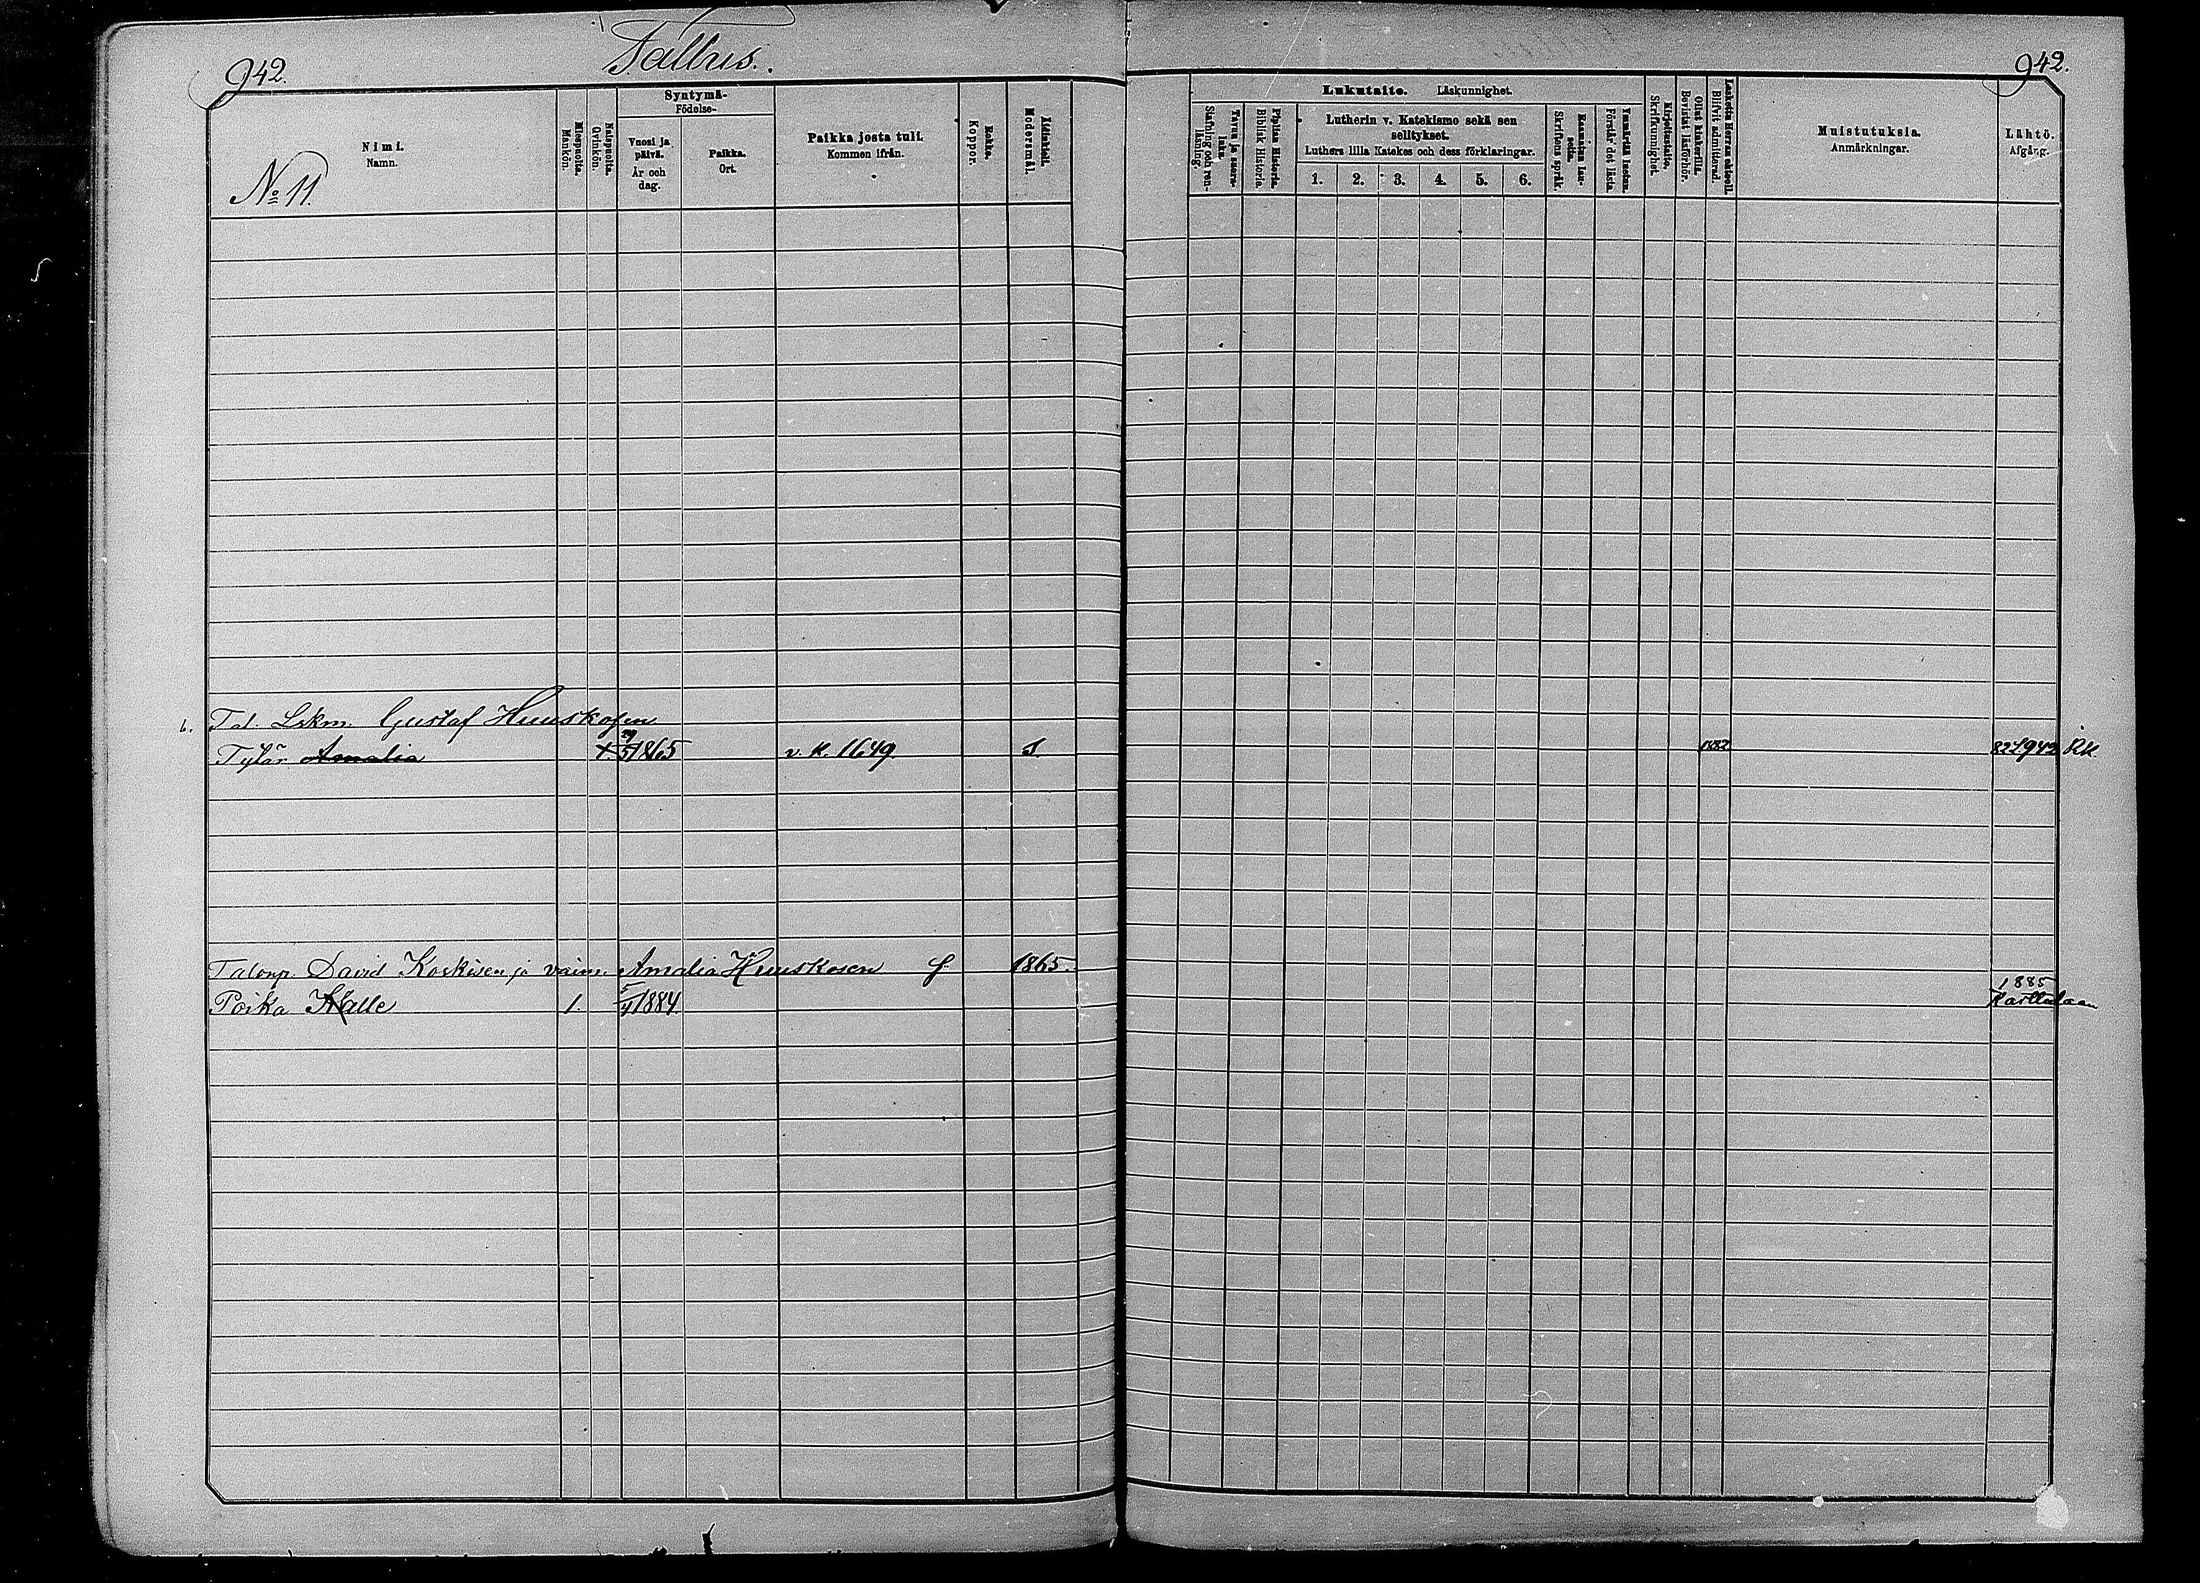 942.
Tallus.
942.
Nimi.
Namn.
No 11.
Miespuolta.
Mankön.
Naispuolta.
Qvinkön.
Syntymä-
Födelse-
Vuosi ja
päivä.
År och
dag.
Paikka.
Ort.
Paikka josta tuli.
Kommen ifrån.
Rokko.
Koppor.
Äidinkieli.
Modersmål.
Lukutaito. Läskunnighet.
Tavuu ja suora-
luku.
Stafning och ren-
läsning.
Piplian Historia.
Biblisk Historia.
Lutherin v. Katekismo sekä sen
selitykset.
Luthers lilla Katekes och dess förklaringar.
1. 2. 3. 4. 5. 6.
Raamatun lau-
seita.
Skriftens språk.
Ymmärtää luetun.
Förstår det lästa.
Kirjoitustaito.
Skrifkunnighet.
Ollut kinkerillä.
Bevistat läsförhör.
Laskettu Herran ehtooll.
Blifvit admitterad.
Muistutuksia.
Anmärkningar.
Lähtö.
Afgång.
6. Tal. Lskm. Gustaf Huuskosen
Tytär Amalia +. 29/5 1865 v. k. 1649. S. 1882 82 1942 RK.
Talonp. David Koskisen ja vaim. Amalia Huuskosen f. 1865.
Poika Kalle 1. 5/4 1884. 1885
Karttulaan